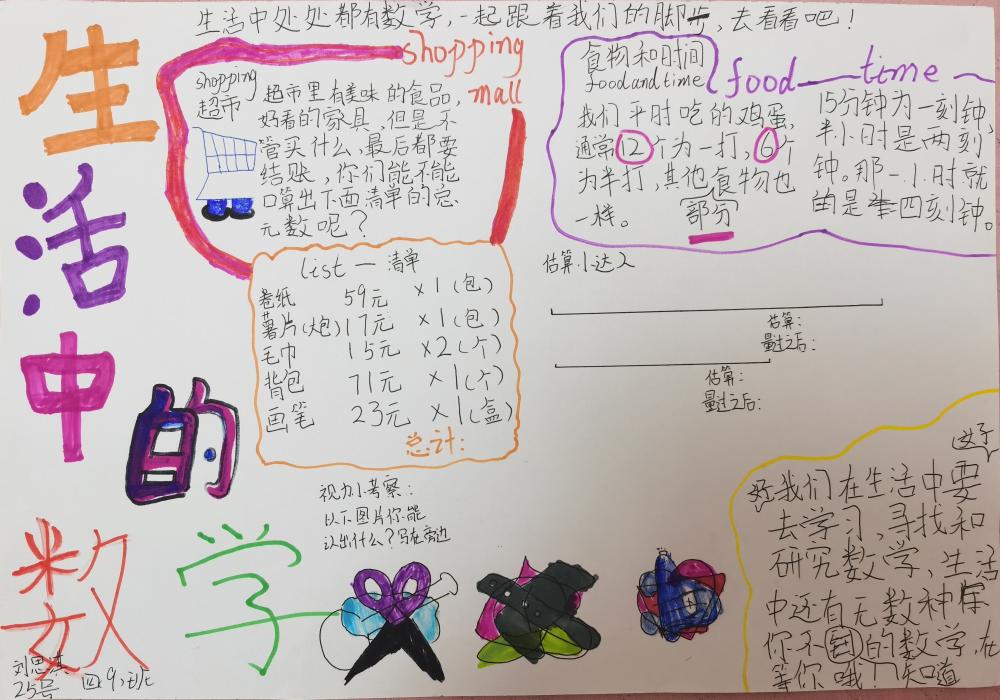 生活中处处都有数学,一起跟着我们的脚步,去看看吧!
生活中的数学
shopping mall
shopping
超市
超市里有美味的食品,
好看的家具,但是不
管买什么,最后都要
结账,你们能不能
口算出下面清单的总
元数呢?
list — 清单
卷纸 59元 ×1(包)
薯片(大包) 17元 ×1(包)
毛巾 15元 ×2(个)
背包 71元 ×1(个)
画笔 23元 ×1(盒)
总计:
食物和时间
food and time
food — time
我们平时吃的鸡蛋,
通常12个为一打,6个
为半打,其他部分食物也
一样。
15分钟为一刻钟,
半小时是两刻
钟。那一小时就
是四刻钟。
估算小达人
估算:
量过之后:
估算:
量过之后:
视力小考察:
以下图片你能
认出什么?写在旁边
好我们在生活中要
去学习,寻找和
研究数学,生活
中还有无数神
你不知道的数学,在
等你哦!
刘思淇
25号
四.9)班